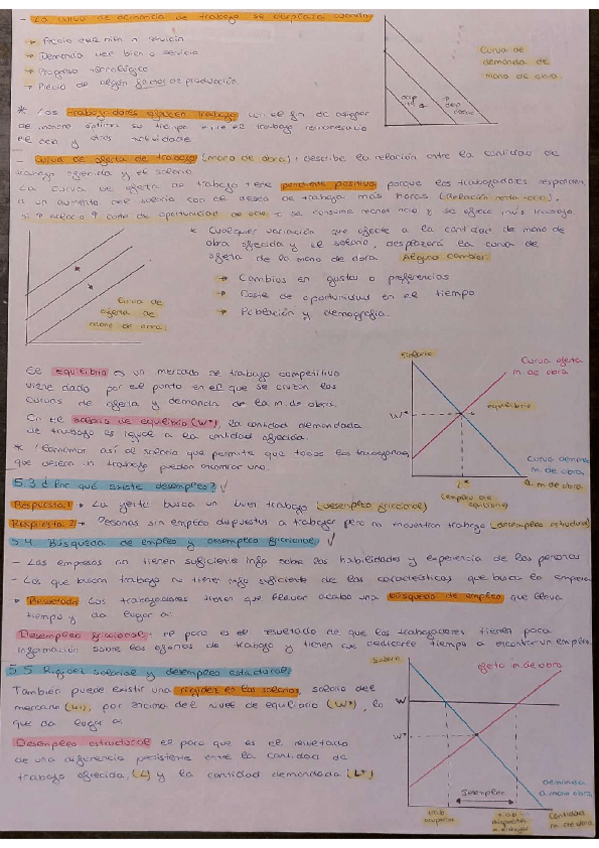 - La curva de demanda de trabajo se desplaza cuando:
→ Precio del bien o servicio
→ Demanda del bien o servicio
→ Progreso tecnológico
→ Precio de algún factor de producción
Curva de
demanda de
mano de obra
* Los trabajadores ofrecen trabajo con el fin de asignar
de manera óptima su tiempo entre el trabajo remunerado
el ocio y otras actividades
- Curva de oferta de trabajo (mano de obra): describe la relación entre la cantidad de
trabajo ofrecida y el salario
La curva de oferta de trabajo tiene pendiente positiva porque los trabajadores responden
a un aumento del salario con el deseo de trabajar más horas (Relación renta-ocio),
se consume menos ocio y se ofrece más trabajo
* Cualquier variación que afecte a la cantidad de mano de
obra ofrecida y el salario, desplazará la curva de
oferta de la mano de obra. Algunos cambios:
→ Cambios en gustos o preferencias
→ Coste de oportunidad en el tiempo
→ Población y demografía.
Curva de
oferta de
mano de obra.
El equilibrio en un mercado de trabajo competitivo
viene dado por el punto en el que se cruzan las
curvas de oferta y demanda de la m. de obra.
En el salario de equilibrio (W*), la cantidad demandada
de trabajo es igual a la cantidad ofrecida.
* Llamamos así al salario que permite que todos los trabajadores
que deseen un trabajo puedan encontrar uno.
Salario
Curva oferta
m. de obra.
W*
equilibrio
Curva demanda
m. de obra.
L*
(empleo de
equilibrio)
5.3 ¿Por qué existe desempleo?
Respuesta 1 • La gente busca un buen trabajo (desempleo friccional)
Respuesta 2 → Personas sin empleo dispuestas a trabajar pero no encuentran trabajo (desempleo estructural)
5.4 Búsqueda de empleo y desempleo friccional
- Las empresas no tienen suficiente info sobre las habilidades y experiencia de las personas
- Los que buscan trabajo no tienen info suficiente de las características que busca la empresa
• Resultado: Los trabajadores tienen que llevar acabo una búsqueda de empleo que lleva
tiempo y da lugar a:
Desempleo friccional: el paro es el resultado de que los trabajadores tienen poca
información sobre las ofertas de trabajo y tienen que dedicarle tiempo a encontrar un empleo.
5.5 Rigidez salarial y desempleo estructural
También puede existir una rigidez en los salarios, salario del
mercado (W), por encima del nivel de equilibrio (W*), lo
que da lugar a:
Desempleo estructural el paro que es el resultado
de una diferencia persistente entre la cantidad de
trabajo ofrecida, (L) y la cantidad demandada (L*)
Salario
oferta m. de obra.
W
W*
Desempleo
demanda
a mano obra.
Cantidad
m. de obra.